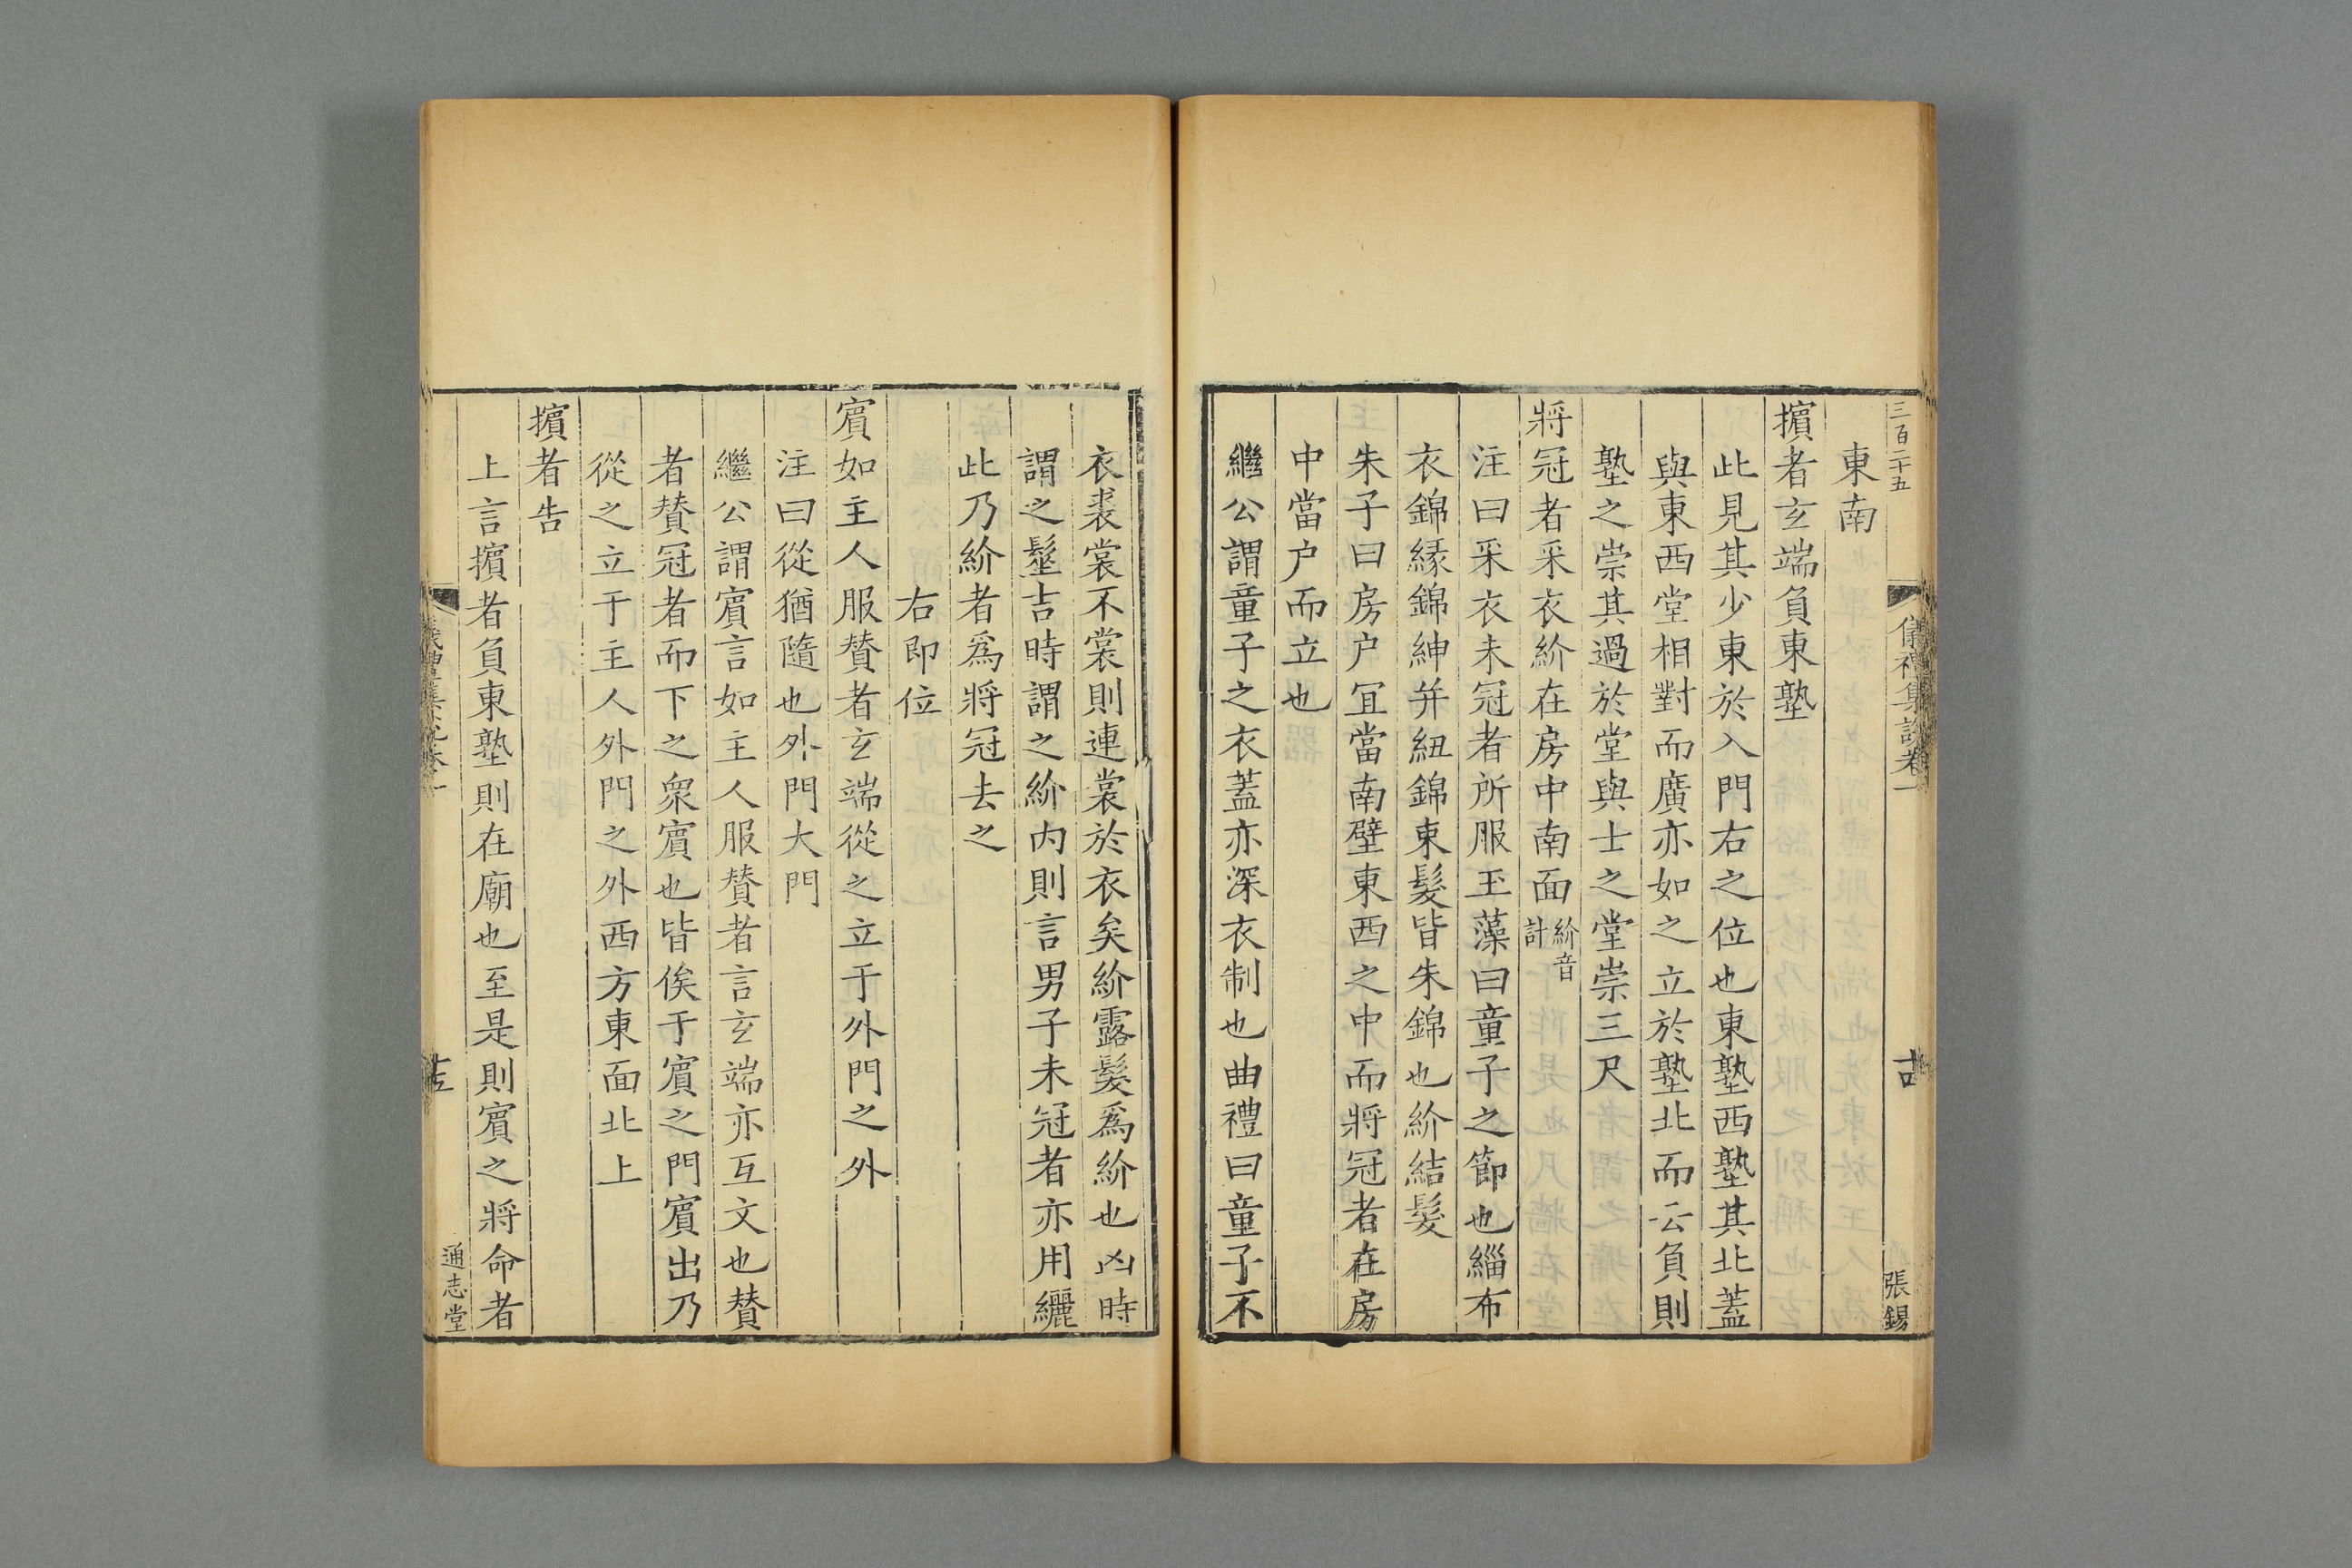 三百二十五
儀禮集說卷一
十四
張錫
東南
擯者玄端負東塾
此見其少東於入門右之位也東塾西塾其北蓋
與東西堂相對而廣亦如之立於塾北而云負則
塾之崇其過於堂與士之堂崇三尺
將冠者采衣紒在房中南面紒音計
注曰采衣未冠者所服玉藻曰童子之節也緇布
衣錦緣錦紳并紐錦束髮皆朱錦也紒結髮
朱子曰房户宜當南壁東西之中而將冠者在房
中當户而立也
繼公謂童子之衣蓋亦深衣制也曲禮曰童子不
衣裘裳不裳則連裳於衣矣紒露髮爲紒也凶時
謂之髽吉時謂之紒内則言男子未冠者亦用纚
此乃紒者爲將冠去之
右即位
賔如主人服贊者玄端從之立于外門之外
注曰從猶隨也外門大門
繼公謂賔言如主人服贊者言玄端亦互文也贊
者贊冠者而下之衆賔也皆俟于賔之門賔出乃
從之立于主人外門之外西方東面北上
擯者告
上言擯者負東塾則在廟也至是則賔之將命者
十五
通志堂